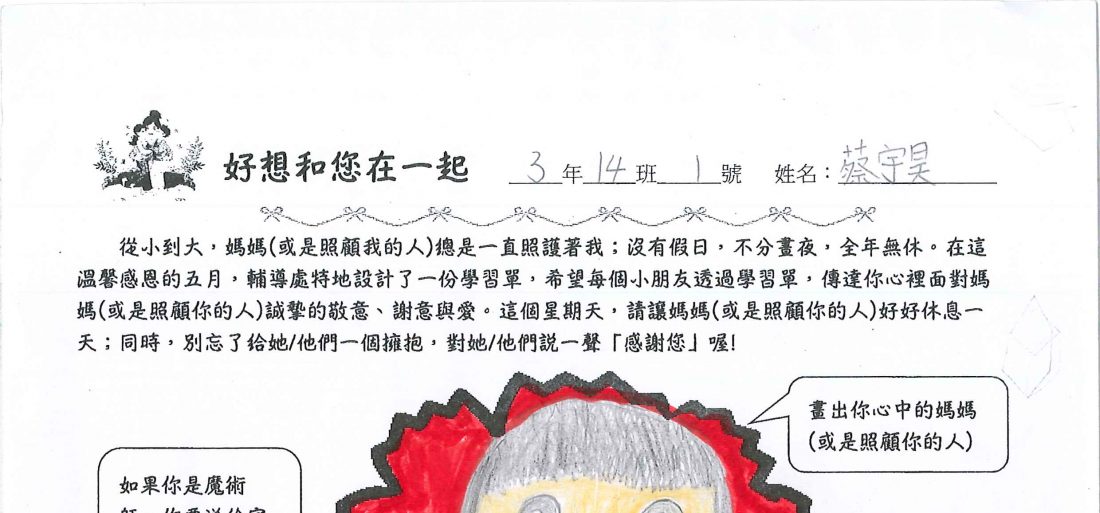 好想和您在一起 3年14班1號 姓名：蔡宇昊
從小到大，媽媽(或是照顧我的人)總是一直照護著我；沒有假日，不分晝夜，全年無休。在這
溫馨感恩的五月，輔導處特地設計了一份學習單，希望每個小朋友透過學習單，傳達你心裡面對媽
媽(或是照顧你的人)誠摯的敬意、謝意與愛。這個星期天，請讓媽媽(或是照顧你的人)好好休息一
天；同時，別忘了給她/他們一個擁抱，對她/他們說一聲「感謝您」喔!
畫出你心中的媽媽
(或是照顧你的人)
如果你是魔術